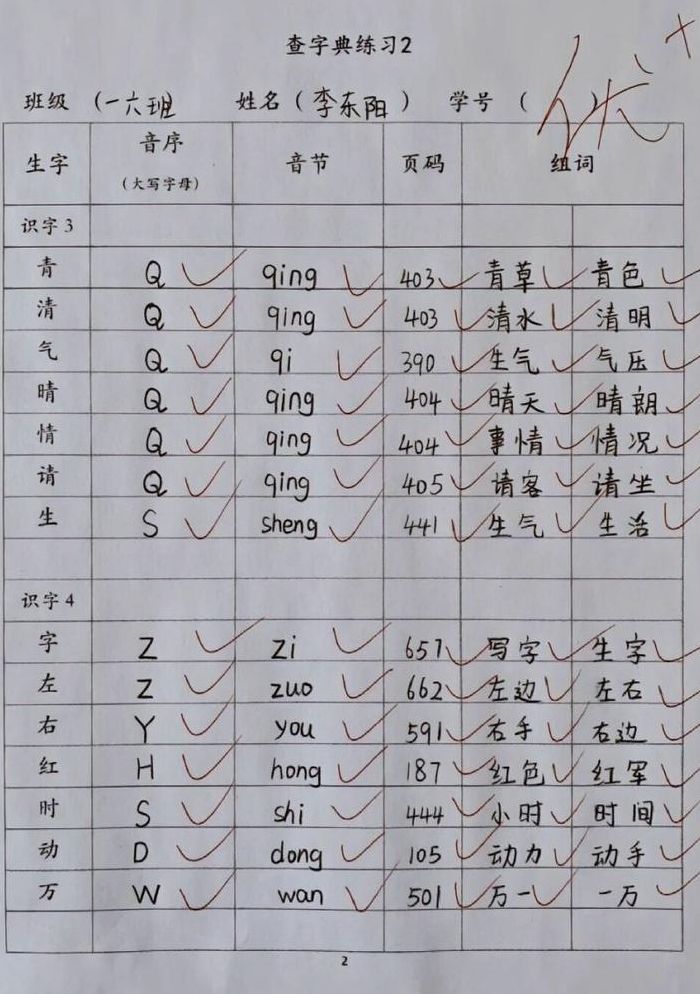 查字典练习2
班级 (一六班 姓名 (李东阳) 学号 ( ) 优+
生字 音序 (大写字母) 音节 页码 组词
识字3
青 Q qing 403 青草 青色
清 Q qing 403 清水 清明
气 Q qi 390 生气 气压
晴 Q qing 404 晴天 晴朗
情 Q qing 404 事情 情况
请 Q qing 405 请客 请坐
生 S sheng 441 生气 生活
识字4
字 Z zi 657 写字 生字
左 Z zuo 662 左边 左右
右 Y you 591 右手 右边
红 H hong 187 红色 红军
时 S shi 444 小时 时间
动 D dong 105 动力 动手
万 W wan 501 万一 一万
2